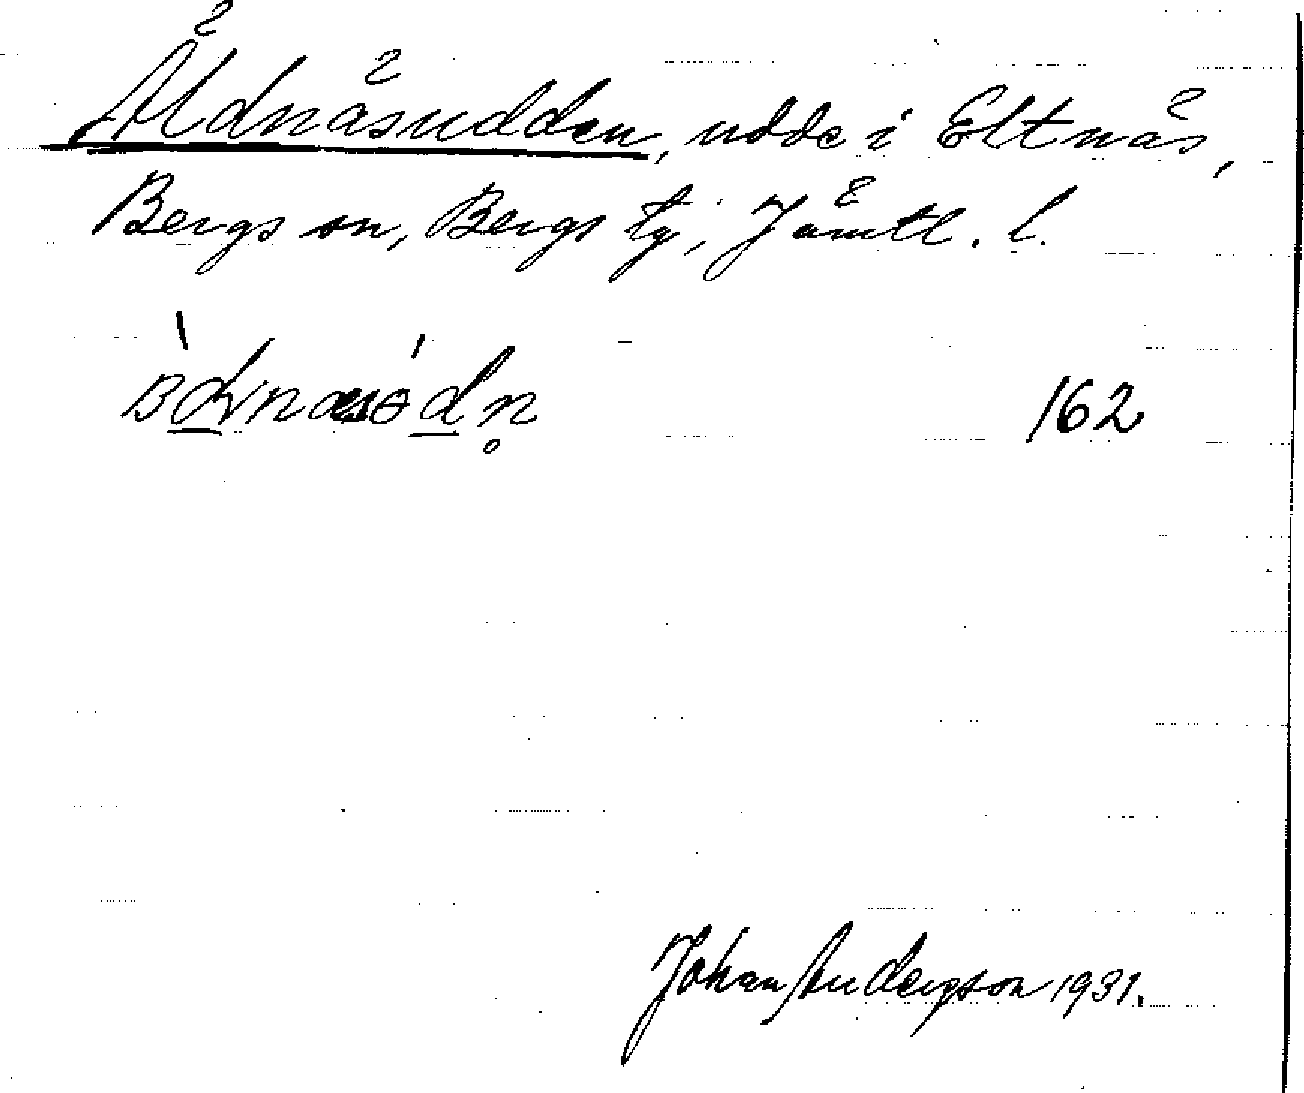 Äldnäsudden, udde i Eltnäs,
Bergs sn, Bergs tg, Jämtl. l.
162
Johan Andersson 1931.